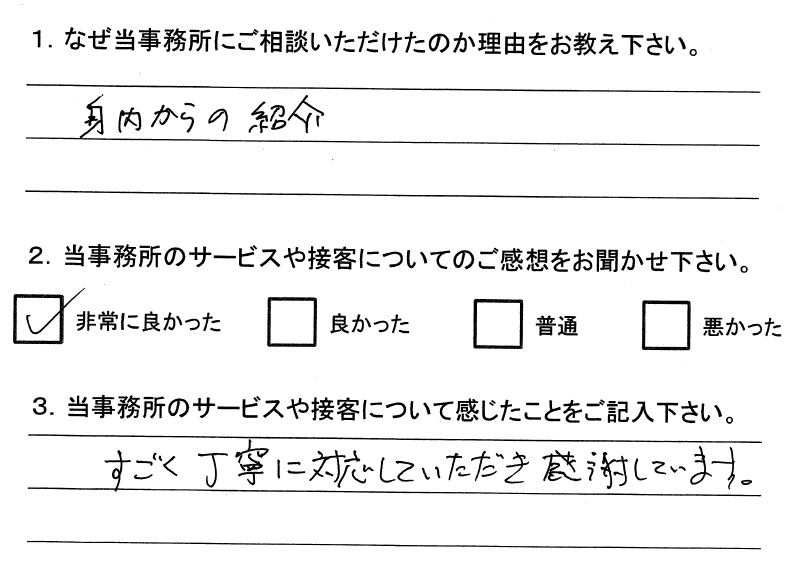 1. なぜ当事務所にご相談いただけたのか理由をお教え下さい。
身内からの紹介
2. 当事務所のサービスや接客についてのご感想をお聞かせ下さい。
非常に良かった 良かった 普通 悪かった
3. 当事務所のサービスや接客について感じたことをご記入下さい。
すごく丁寧に対応していただき感謝しています。